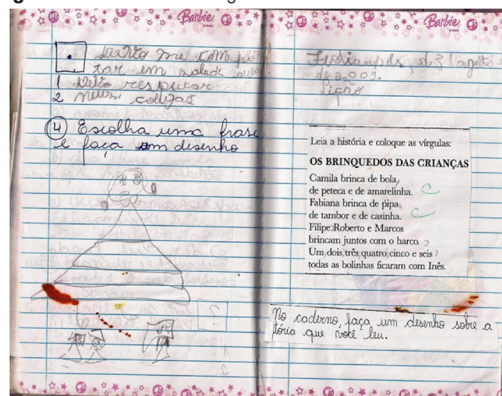 Barbie
me com
tar em
2 meus colegas
4 Escolha uma frase
e faça um desenho
Barbie
Leia a história e coloque as vírgulas:
OS BRINQUEDOS DAS CRIANÇAS
Camila brinca de bola,
de peteca e de amarelinha.
Fabiana brinca de pipa,
de tambor e de casinha.
Filipe, Roberto e Marcos
brincam juntos com o barco.
Um, dois, três, quatro, cinco e seis
todas as bolinhas ficaram com Inês.
No caderno, faça um desenho sobre a
tória que você leu.